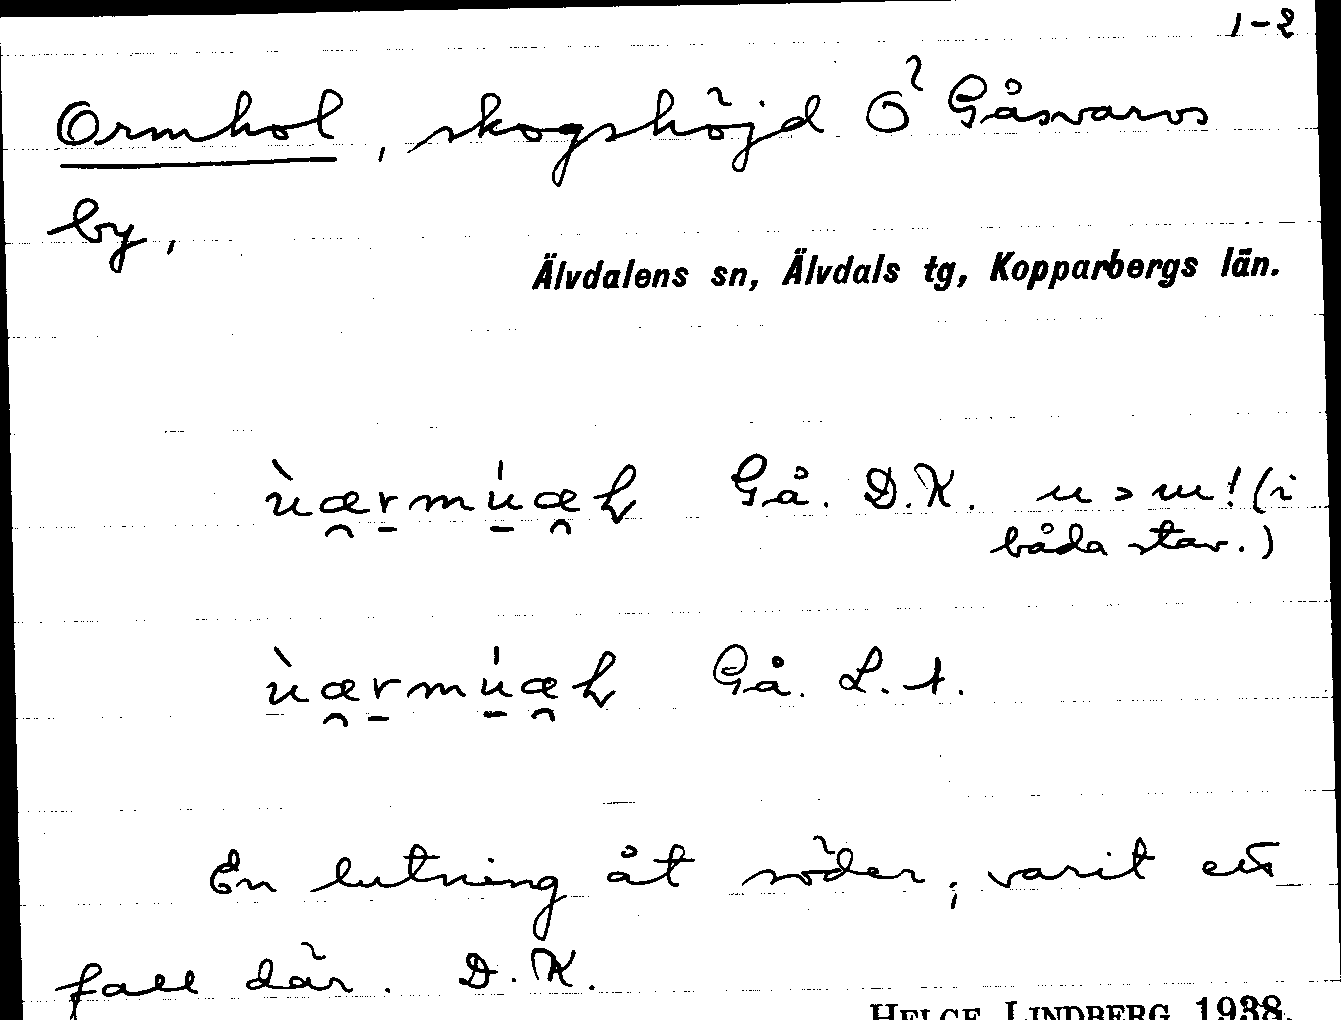 1-2
Ormhol, skogshöjd Ö Gåsvarvs
by,
Älvdalens sn, Älvdals tg, Kopparbergs län.
ùæ̯r̠mú̠æ̯ɫ Gå. D.K. u > ɯ! (i
båda stav.)
ùæ̯r̠mú̠æ̯ɫ Gå. L.A.
En lutning åt söder, varit ett
fall där. D.K.
HELGE LINDBERG 1938.